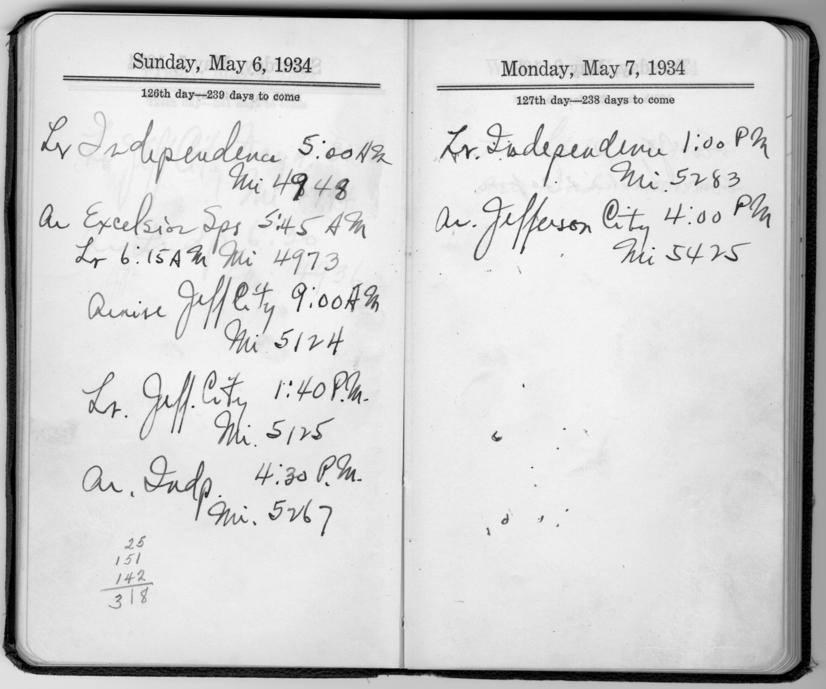 Sunday, May 6, 1934
126th day—239 days to come
Lv Independence 5:00 AM
Mi 4948
Ar Excelsior Sps 5:45 AM
Lv 6:15 AM Mi 4973
Arrive Jeff City 9:00 AM
Mi 5124
Lv. Jeff. City 1:40 P.M.
Mi. 5125
Ar. Indp. 4:30 P.M.
Mi. 5267
25
151
142
318
Monday, May 7, 1934
127th day—238 days to come
Lv. Independence 1:00 PM
Mi. 5283
Ar. Jefferson City 4:00 PM
Mi 5425